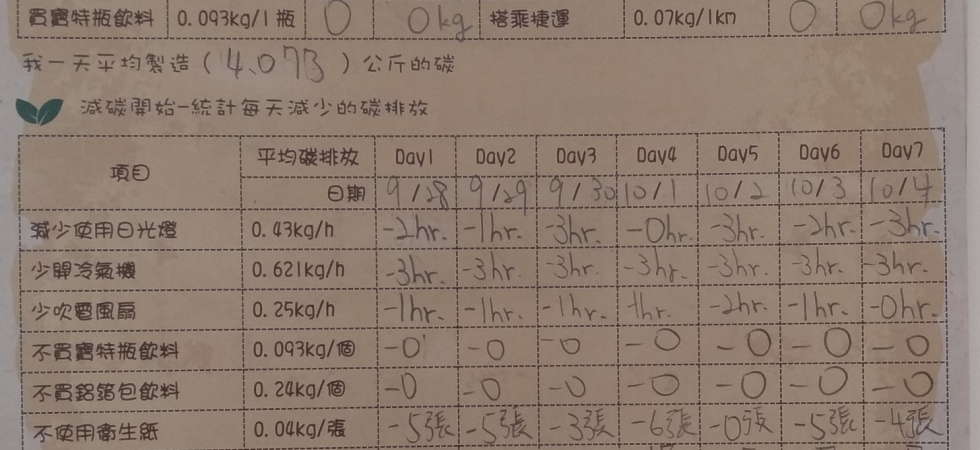 買寶特瓶飲料 0.093kg/1瓶 0 0kg 搭乘捷運 0.07kg/1km 0 0kg
我一天平均製造(14.073)公斤的碳
減碳開始-統計每天減少的碳排放
項目 平均碳排放 Day1 Day2 Day3 Day4 Day5 Day6 Day7
日期 9/28 9/29 9/30 10/1 10/2 10/3 10/4
減少使用日光燈 0.43kg/h -2hr. -1hr. -3hr. -0hr. -3hr. -2hr. -3hr.
少開冷氣機 0.621kg/h -3hr. -3hr. -3hr. -3hr. -3hr. -3hr. -3hr.
少吹電風扇 0.25kg/h -1hr. -1hr. -1hr. -1hr. -2hr. -1hr. -0hr.
不買寶特瓶飲料 0.093kg/個 -0 -0 -0 -0 -0 -0 -0
不買鋁箔包飲料 0.24kg/個 -0 -0 -0 -0 -0 -0 -0
不使用衛生紙 0.04kg/張 -5張 -5張 -3張 -6張 -0張 -5張 -4張